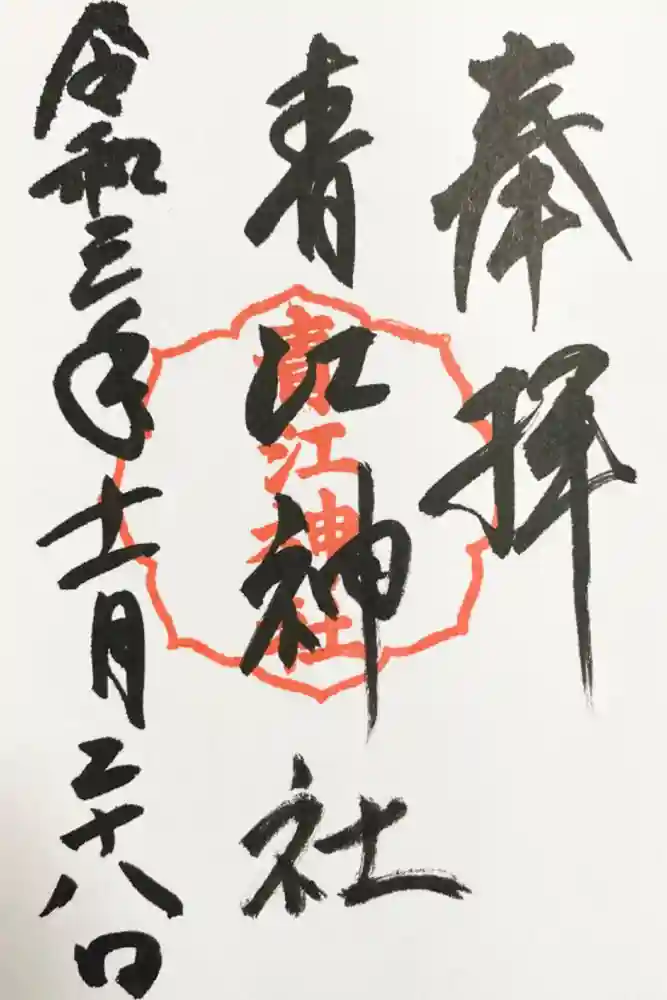 奉拝
青江神社
青江神社
令和三年十一月二十八日